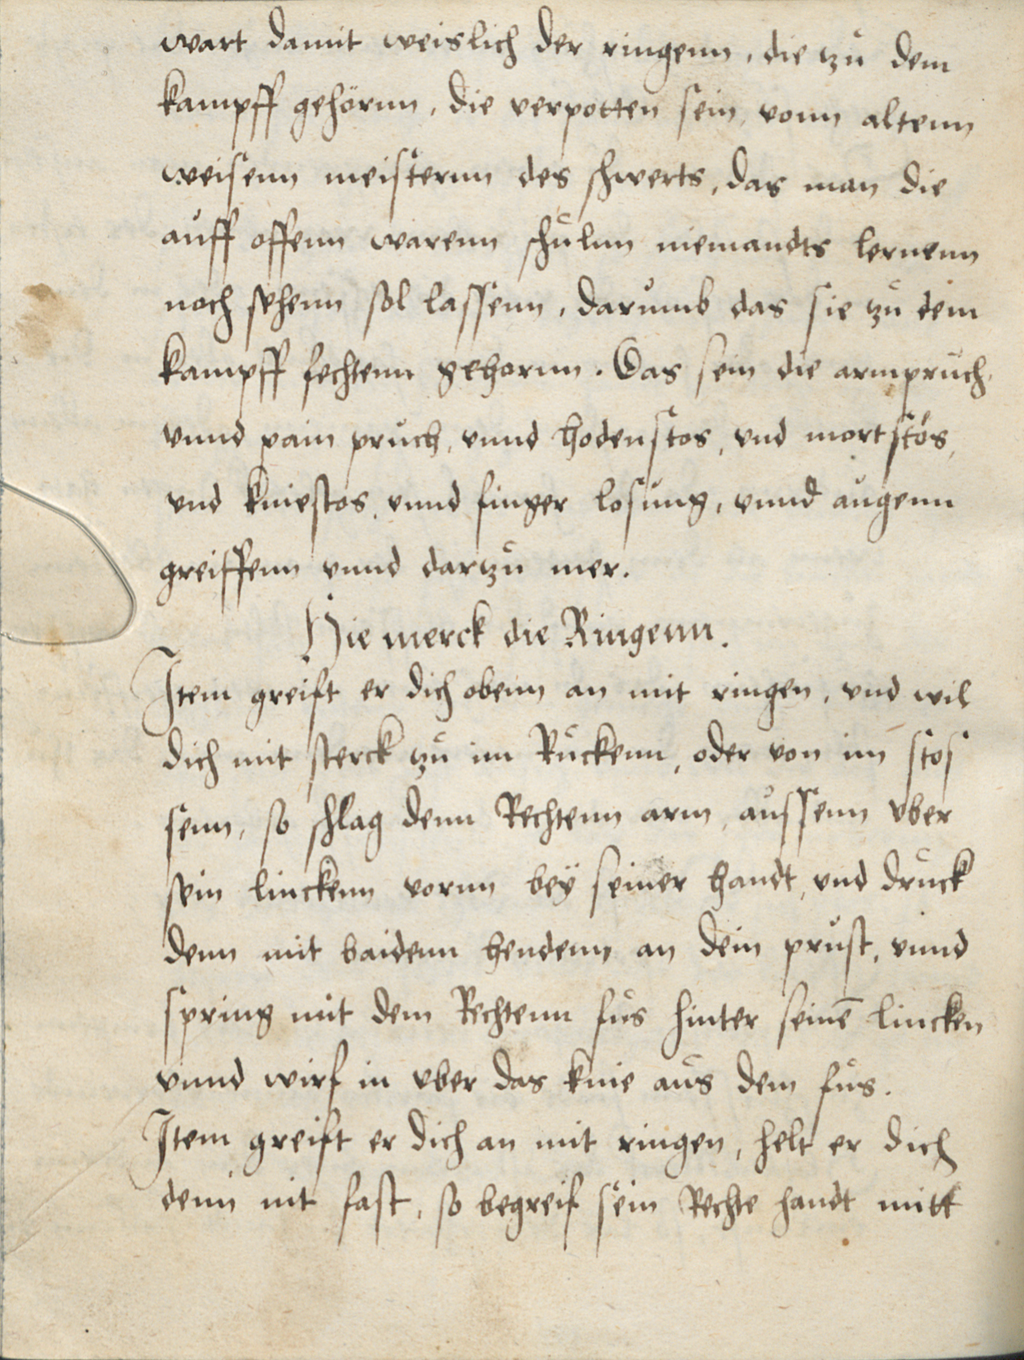 wart damit weislich der ringenn, die zů dem
kampff gehörnn, die verpotten sein, vonn altenn
weisenn meisternn des schwerts, das man die
aůff offenn warenn schůlnn niemandts lernenn
noch sehenn sol lassenn, darůmb das sie zů dem
kampff fechtenn gehornn. Das sein die armprůch,
vnnd pain průch, vnnd hodenstos, vnd mortstös,
vnd kniestos, vnnd finger losůng, vnnd aůgenn
greiffenn vnnd darzů mer.
Hie merck die Ringenn.
Item greift er dich obenn an mit ringen, vnd wil
dich mit sterck zů im Růckenn, oder von im stos
senn, so schlag denn Rechtenn arm, aůssenn vber
sein linckenn vornn beÿ seiner handt, vnd drůck
denn mit baidenn hendenn an dein průst, vnnd
spring mit dem Rechtenn fůs hinter seinē lincken
vnnd wirf in vber das knie aůs dem fůs.
Item greift er dich an mit ringen, helt er dich
denn nit fast, so begreif sein Rechte handt mitt